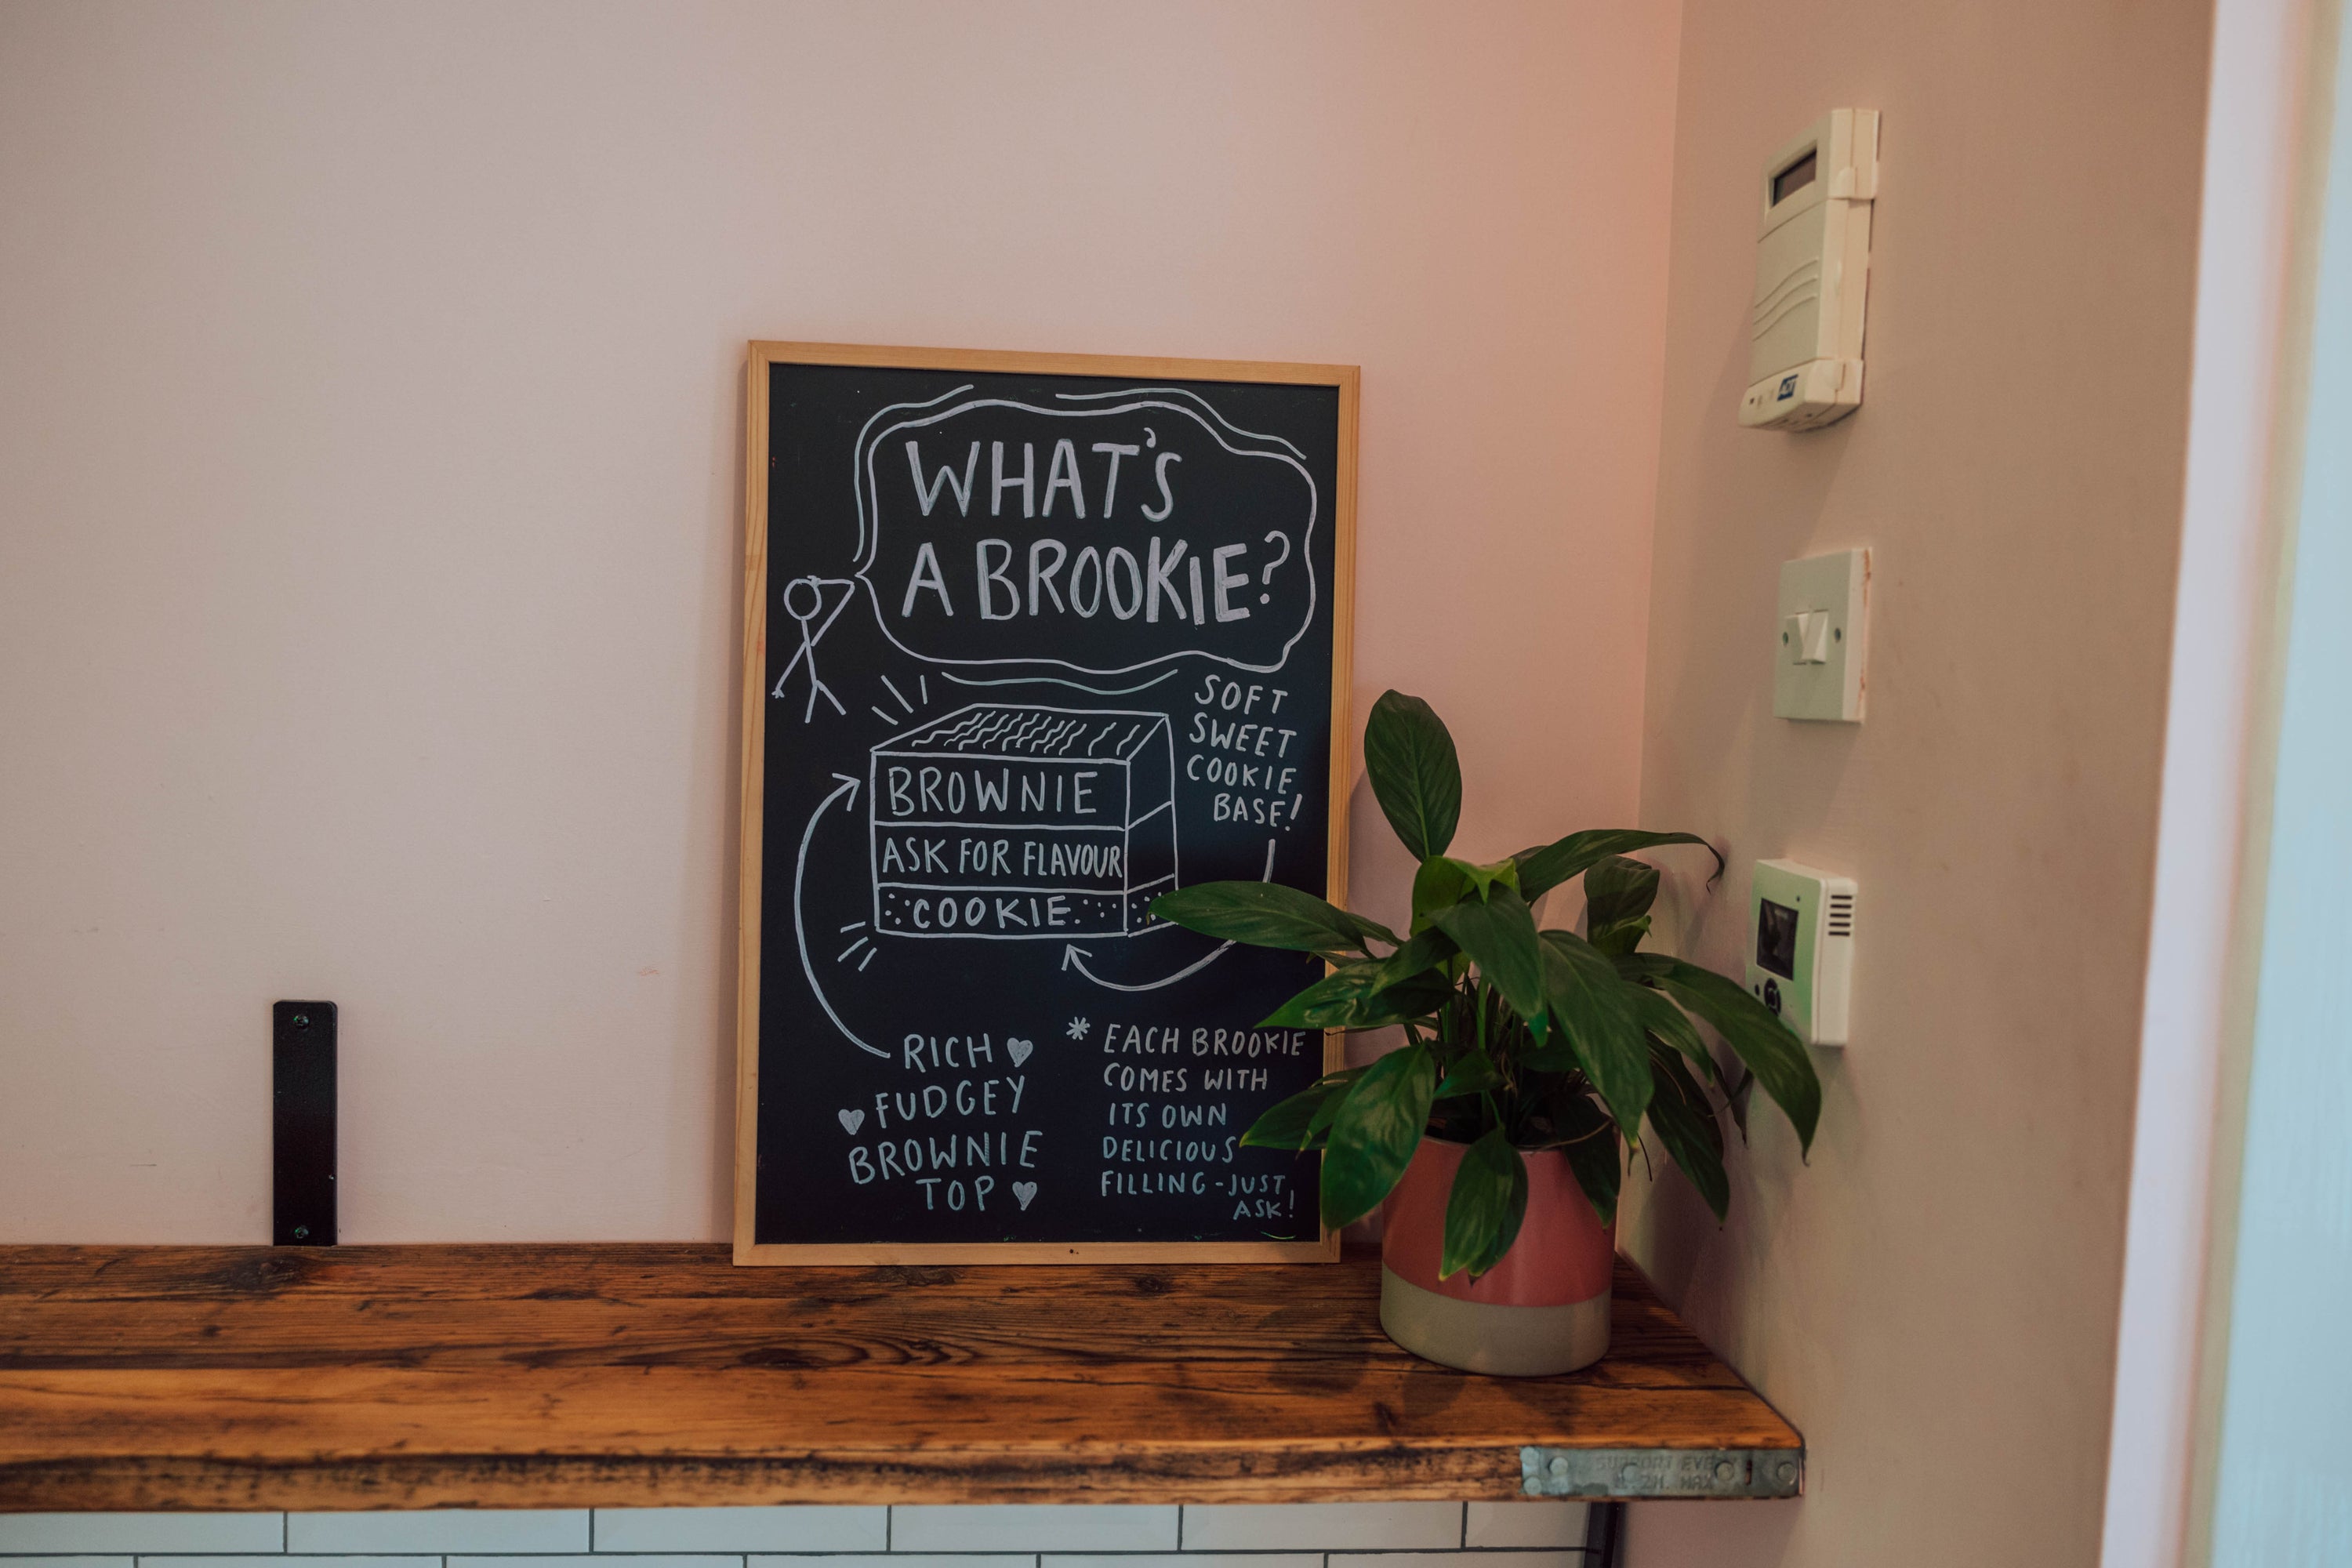 WHAT'S
A BROOKIE?
SOFT
SWEET
COOKIE
BASE!
BROWNIE
ASK FOR FLAVOUR
COOKIE
RICH
FUDGEY
BROWNIE
TOP
* EACH BROOKIE
COMES WITH
ITS OWN
DELICIOUS
FILLING - JUST
ASK!
SUPPORT EVE
MAX